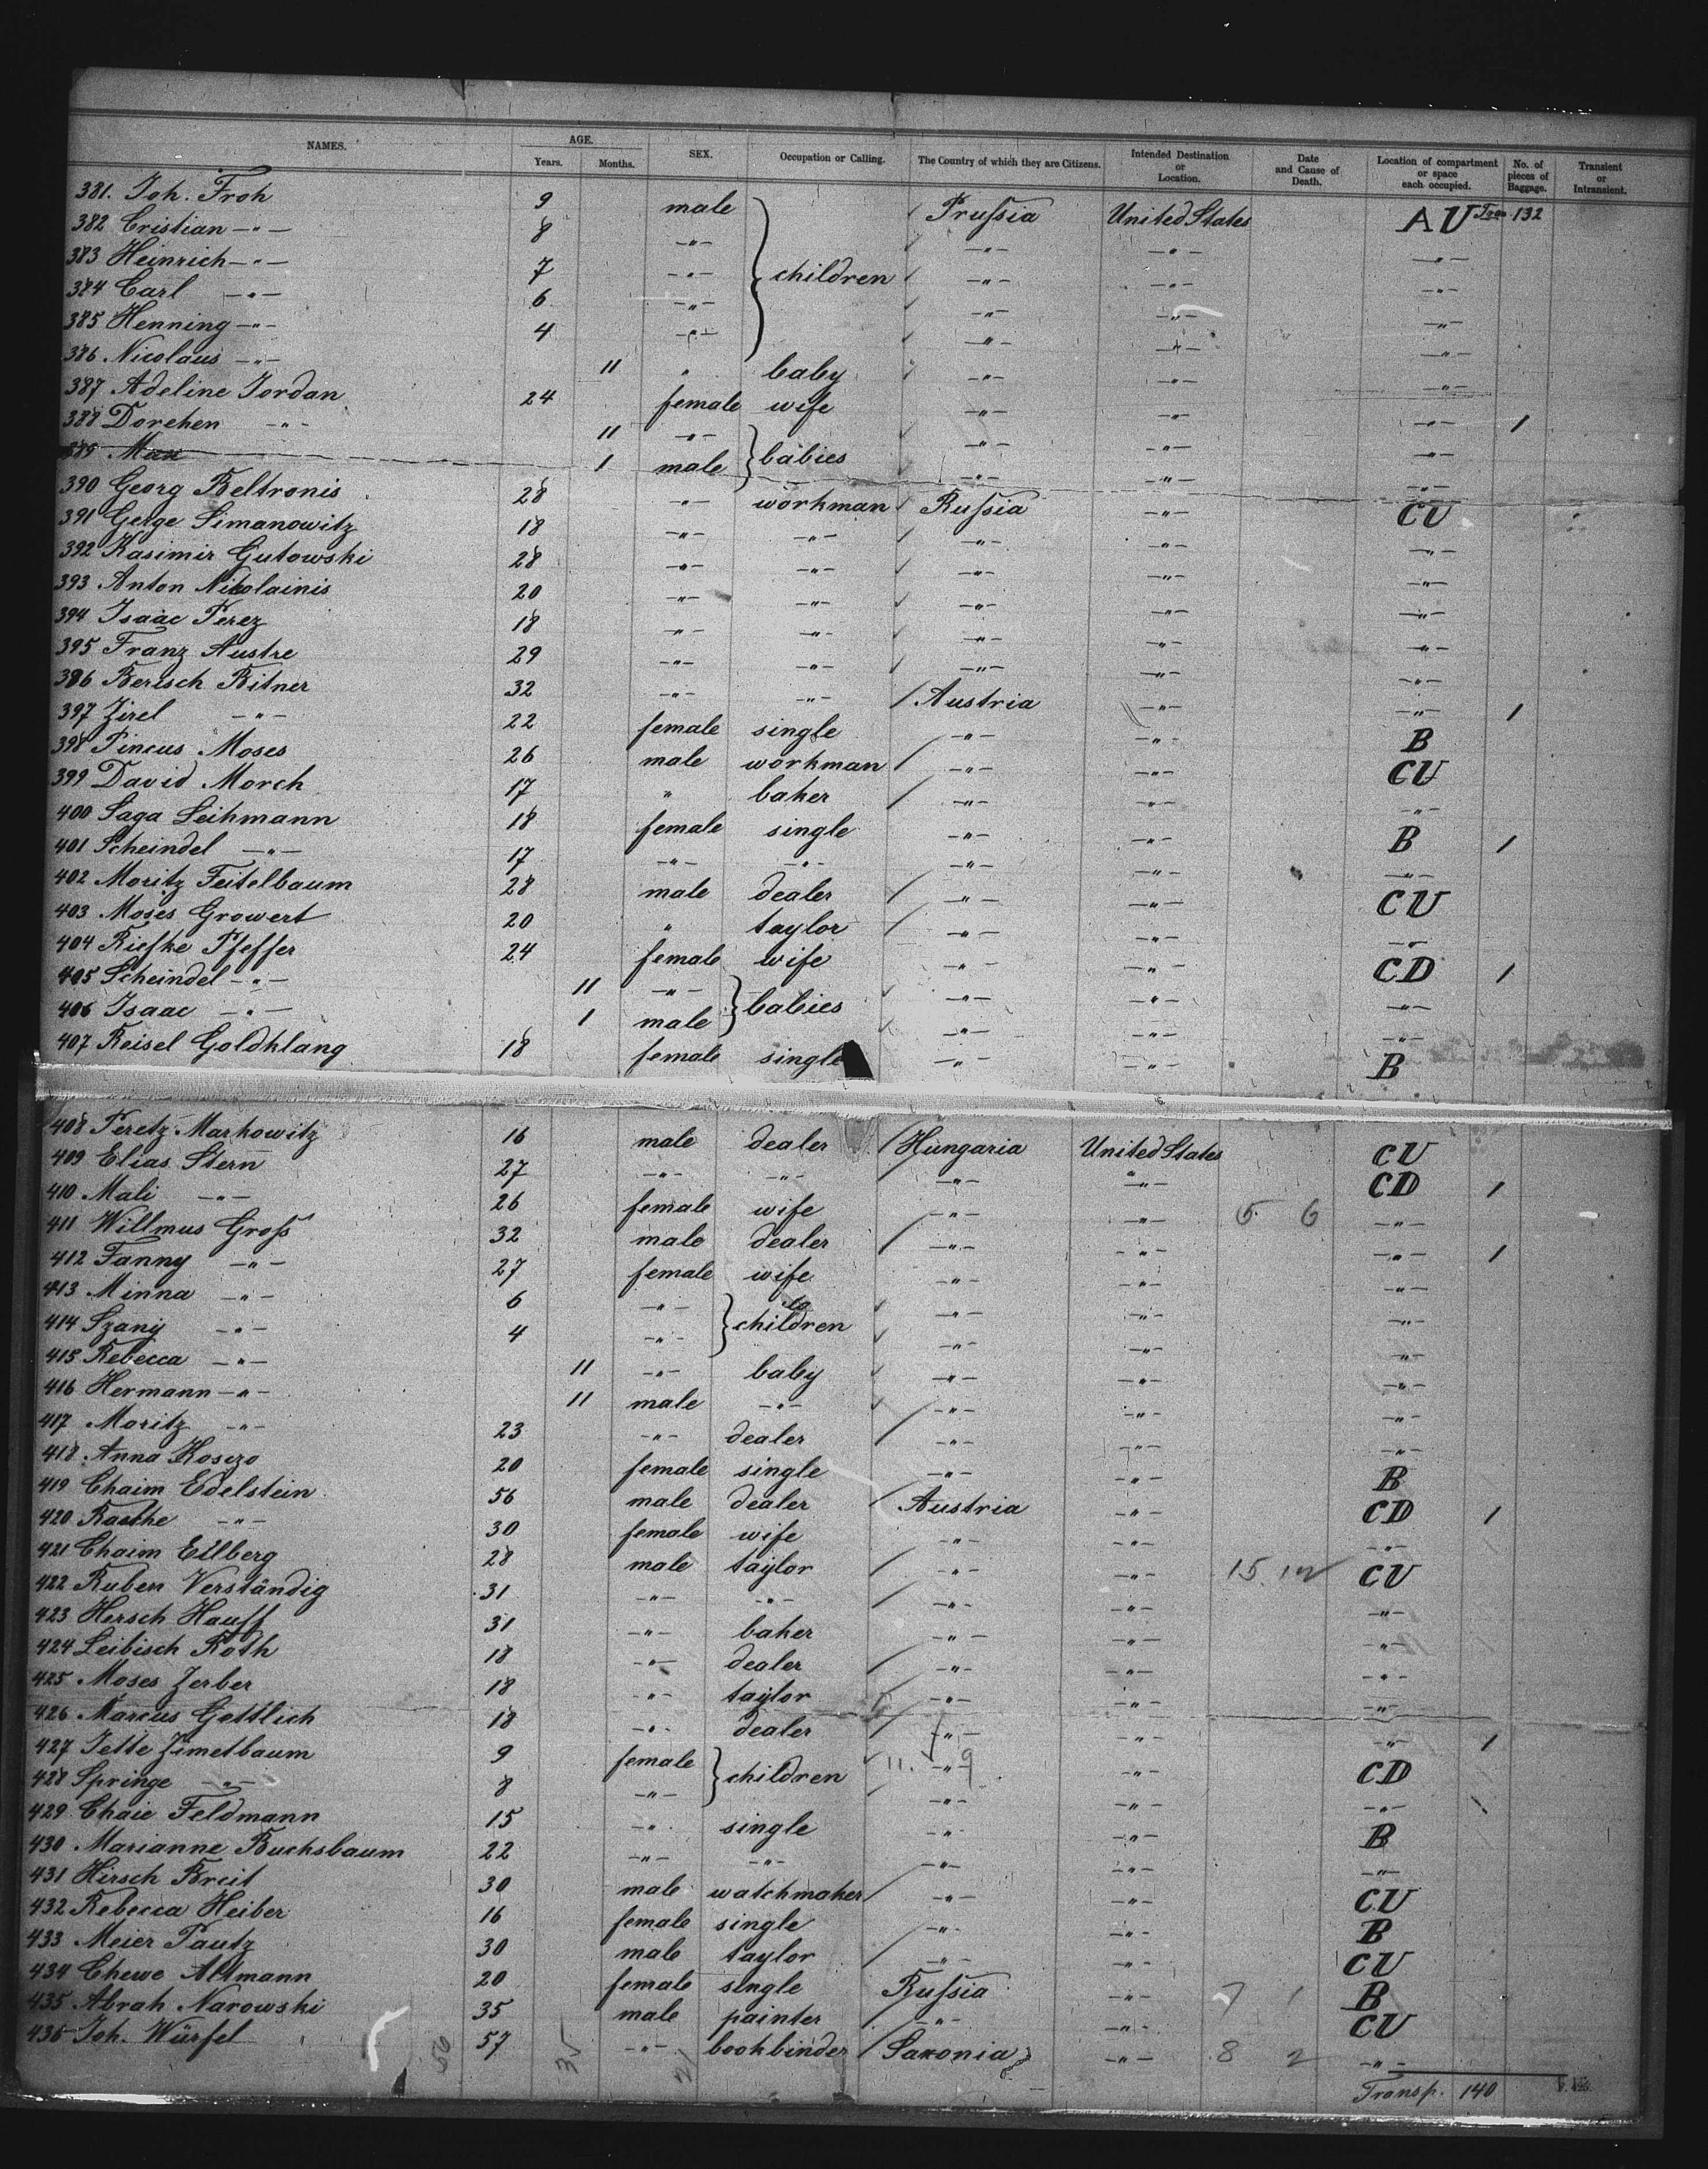 NAMES. AGE. Years. Months. SEX. Occupation or Calling. The Country of which they are Citizens. Intended Destination or Location. Date and Cause of Death. Location of compartment or space each occupied. No. of pieces of Baggage. Transient or Intransient.
381. Joh. Froh 9 male Prussia United States AU Tran 132
382 Cristian -"- 8 -"- -"- -"- -"-
383 Heinrich -"- 7 -"- children -"- -"- -"-
384 Carl -"- 6 -"- -"- -"- -"-
385 Henning -"- 4 -"- -"- -"- -"-
386 Nicolaus -"- 11 " baby -"- -"- -"-
387 Adeline Jordan 24 female wife -"- -"- -"- 1
388 Dorchen -"- 11 -"- babies -"- -"- -"-
389 Max 1 male -"- -"- -"-
390 Georg Beltronis 28 -"- workman Russia -"- CU
391 Gerge Simanowitz 18 -"- -"- -"- -"- -"-
392 Kasimir Gutowski 28 -"- -"- -"- -"- -"-
393 Anton Nikolainis 20 -"- -"- -"- -"- -"-
394 Isaac Perez 18 -"- -"- -"- -"- -"-
395 Franz Austre 29 -"- -"- -"- -"- -"-
396 Berisch Bitner 32 -"- -"- Austria -"- -"- 1
397 Zirel -"- 22 female single -"- -"- B
398 Pincus Moses 26 male workman -"- -"- CU
399 David Morch 17 " baker -"- -"- -"-
400 Saga Leihmann 18 female single -"- -"- B 1
401 Scheindel -"- 17 -"- -"- -"- -"- -"-
402 Moritz Teitelbaum 28 male dealer -"- -"- CU
403 Moses Growert 20 " taylor -"- -"- -"-
404 Riefke Pfeffer 24 female wife -"- -"- CD 1
405 Scheindel -"- 11 -"- babies -"- -"- -"-
406 Isaac -"- 1 male -"- -"- -"-
407 Reisel Goldklang 18 female single -"- -"- B
408 Peretz Markowitz 16 male dealer Hungaria United States CU
409 Elias Stern 27 -"- -"- -"- -"- CD 1
410 Mali -"- 26 female wife -"- -"- 5. 6 -"-
411 Willmus Gross 32 male dealer -"- -"- -"- 1
412 Fanny -"- 27 female wife -"- -"- -"-
413 Minna -"- 6 -"- children -"- -"- -"-
414 Szany -"- 4 -"- -"- -"- -"-
415 Rebecca -"- 11 -"- baby -"- -"- -"-
416 Hermann -"- 11 male -"- -"- -"- -"-
417 Moritz -"- 23 -"- dealer -"- -"- -"-
418 Anna Koszo 20 female single -"- -"- B
419 Chaim Edelstein 56 male dealer Austria -"- CD 1
420 Raethe -"- 30 female wife -"- -"- -"-
421 Chaim Eilberg 28 male taylor -"- -"- 15. CU
422 Ruben Verständig 31 -"- -"- -"- -"- -"-
423 Hersch Hauff 31 -"- baker -"- -"- -"-
424 Leibisch Roth 18 -"- dealer -"- -"- -"-
425 Moses Zerber 18 -"- taylor -"- -"- -"-
426 Marcus Gettlich 18 -"- dealer -"- -"- -"- 1
427 Jette Zimetbaum 9 female children 11. -"- 9 -"- CD
428 Springe -"- 8 -"- -"- -"- -"-
429 Chaie Feldmann 15 -"- single -"- -"- B
430 Marianne Buchsbaum 22 -"- -"- -"- -"- -"-
431 Hirsch Breit 30 male watchmaker -"- -"- CU
432 Rebecca Heiber 16 female single -"- -"- B
433 Meier Pautz 30 male taylor -"- -"- CU
434 Chewe Altmann 20 female single Russia -"- 7 1 B
435 Abrah Narowski 35 male painter -"- -"- CU
436 Joh. Würfel 57 -"- bookbinder Saxonia -"- 8 2 -"-
Transp. 140